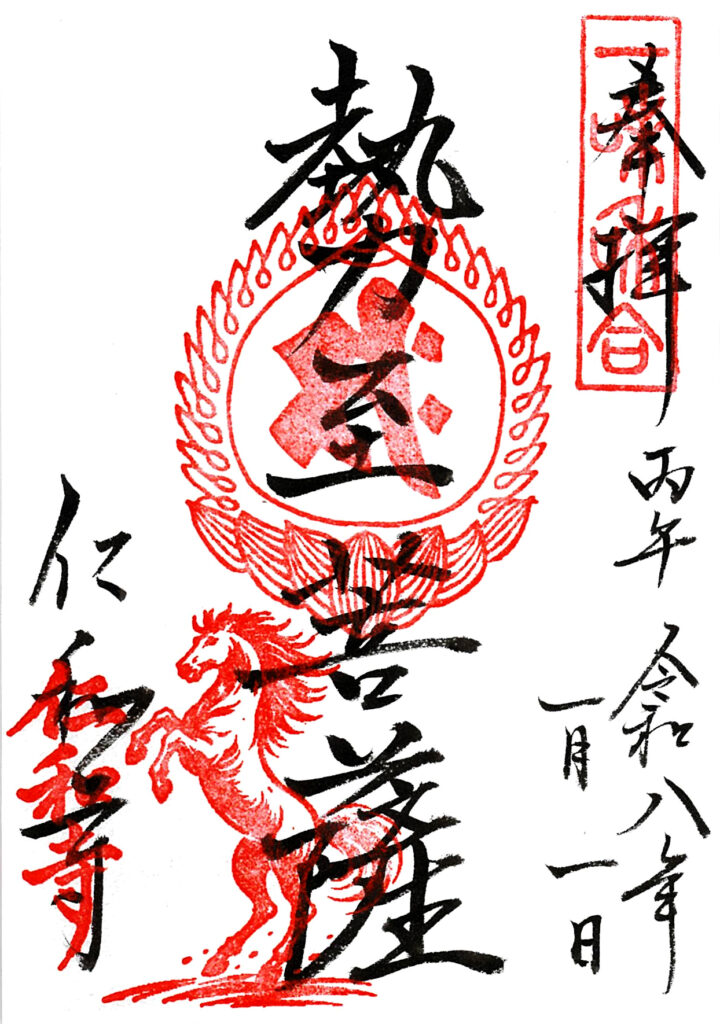 奉拝
丙午
令和八年
一月一日
勢至菩薩
仁和寺
仁和寺